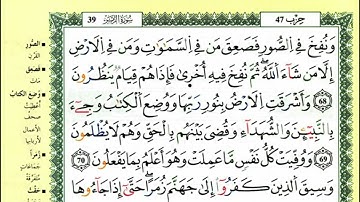 حِزْب 47
سُورَةُ الزُّمَرِ
39
وَنُفِخَ فِي الصُّورِ فَصَعِقَ مَن فِي السَّمَٰوَٰتِ وَمَن فِي الْأَرْضِ
إِلَّا مَن شَاءَ اللَّهُ ثُمَّ نُفِخَ فِيهِ أُخْرَىٰ فَإِذَا هُمْ قِيَامٌ يَنظُرُونَ
68 وَأَشْرَقَتِ الْأَرْضُ بِنُورِ رَبِّهَا وَوُضِعَ الْكِتَٰبُ وَجِاْيٓءَ
بِالنَّبِيِّـۧنَ وَالشُّهَدَاءِ وَقُضِيَ بَيْنَهُم بِالْحَقِّ وَهُمْ لَا يُظْلَمُونَ
69 وَوُفِّيَتْ كُلُّ نَفْسٍ مَّا عَمِلَتْ وَهُوَ أَعْلَمُ بِمَا يَفْعَلُونَ 70
وَسِيقَ الَّذِينَ كَفَرُوا إِلَىٰ جَهَنَّمَ زُمَرًا حَتَّىٰ إِذَا جَاءُوهَا
الصُّورِ
القَرْنِ
فَصَعِقَ
مَاتَ
وُضِعَ الكِتَابُ
أُعْطِيَتْ
صُحُفُ
الأَعْمَالِ
لِأَرْبَابِهَا
زُمَرًا
جَمَاعَاتٍ
مُتَفَرِّقَةً
حَقَّتْ